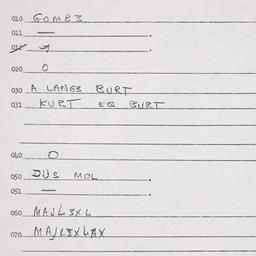 010 GOMB3
011 — .
012 .
020 O
030 A LANGS BURT
031 KURT EQ BURT
040 O
050 DUS MOL
051 — .
060 MAJL3XL
070 MAJL3XLAX